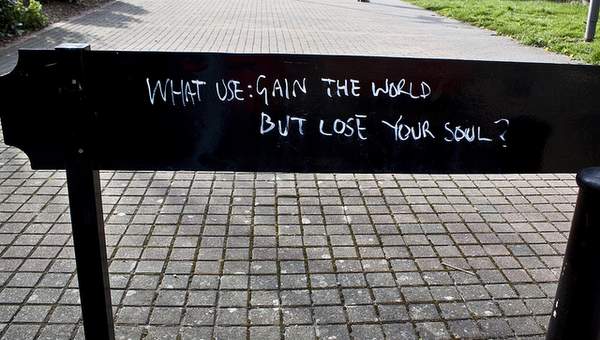 WHAT USE: GAIN THE WORLD
BUT LOSE YOUR SOUL?